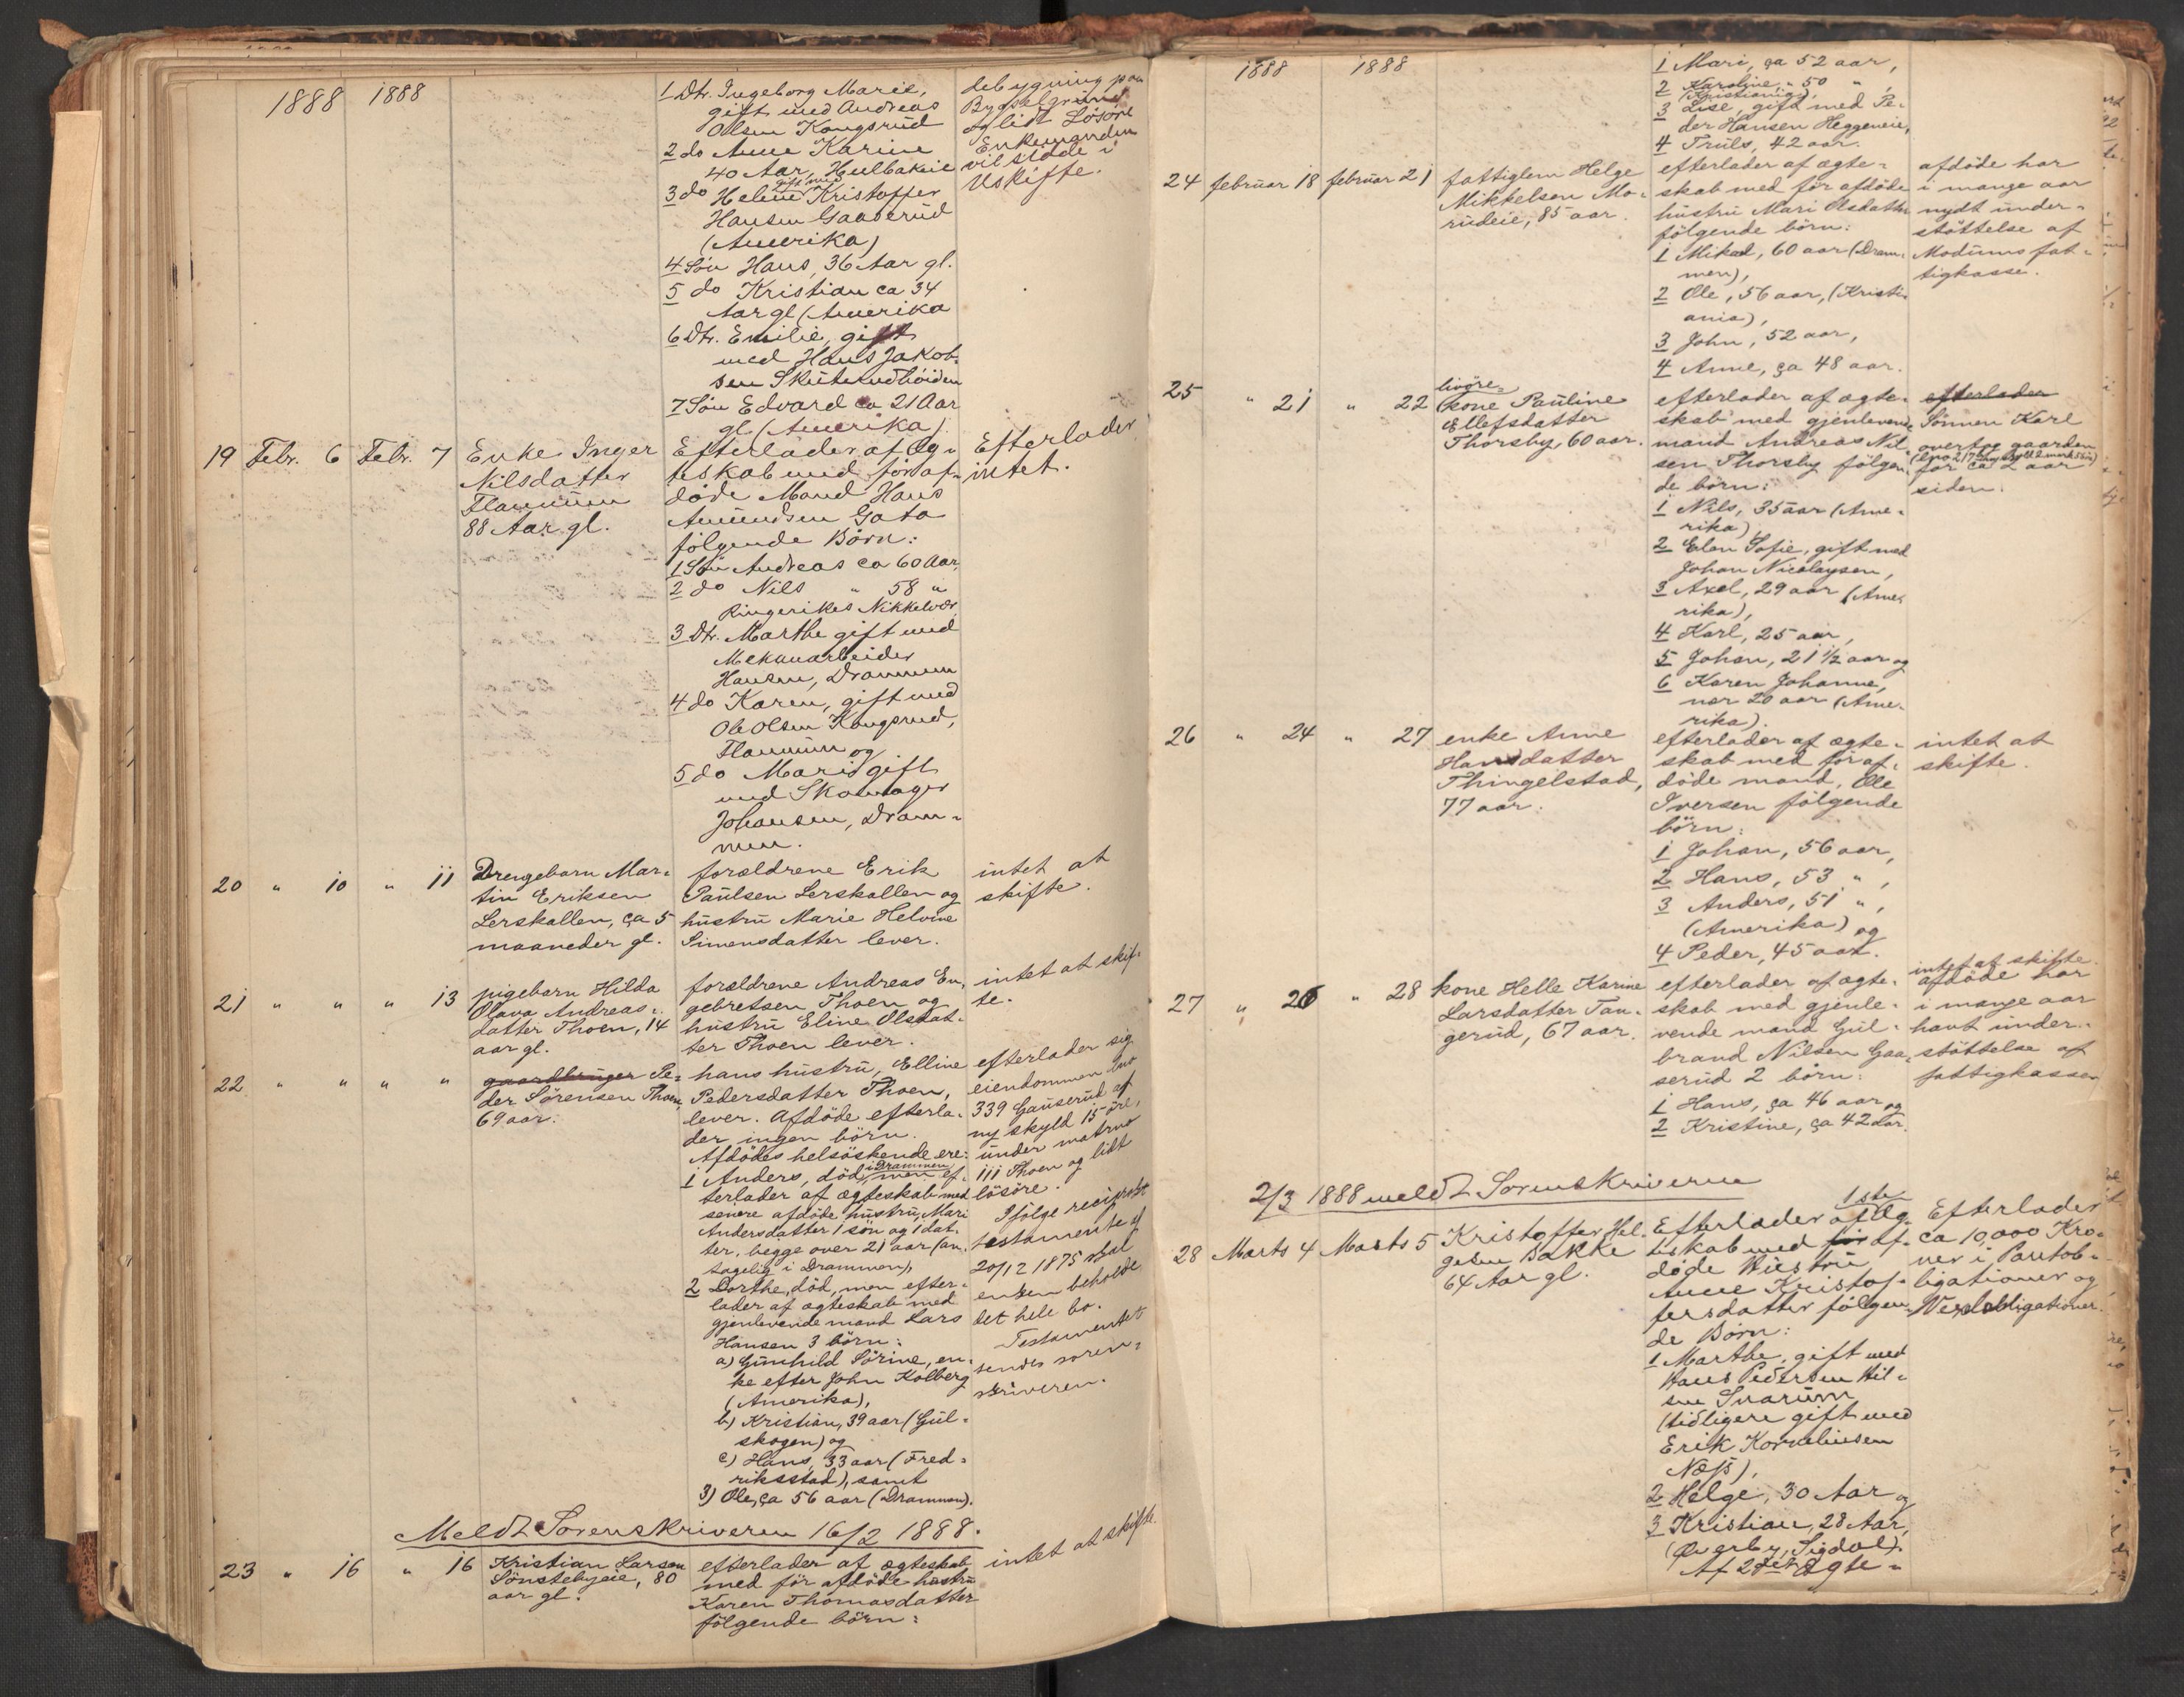 1888 1888
1 Dtr. Ingeborg Marie,
gift med Andreas
Olsen Kongsrud
2 do Anne Karine
40 Aar, Hulbakeie
3 do Helene gift med Kristoffer
Hansen Gaaserud
(Amerika)
4 Søn Hans, 36 Aar gl.
5 do Kristian ca 34
Aar gl (Amerika
6 Dtr. Emilie, gift
med Hans Jakob-
sen Skuterudhöiden
7 Søn Edvard ca 21 Aar
gl. (Amerika)
debygning paa
Bygselgrund
og lidt Lösöre
Enkemanden
vil sidde i
Uskifte.
19 Febr. 6 Febr. 7 Enke Inger
Nilsdatter
Flannum
88 Aar gl.
Efterlader af Æg-
teskab med för af-
döde Mand Hans
Amundsen Gata
følgende Børn:
1 Søn Andreas ca 60 Aar,
2 do Nils " 58 "
Ringerikes Nikkelvær
3 Dtr. Marthe gift med
Mekanarbeider
Hansen, Drammen
4 do Karen, gift med
Ole Olsen Kongsrud,
Flannum og
5 do Mari gift
med Skomager
Johansen, Dram-
men.
Efterlader
intet.
20 " 10 " 11 Drengebarn Mar-
tin Eriksen
Lerskallen, ca 5
maaneder gl.
forældrene Erik
Paulsen Lerskallen og
hustru Marie Helvine
Simensdatter lever.
intet at
skifte.
21 " " " 13 pigebarn Hilda
Olava Andreas-
datter Thoen, 14
aar gl.
forældrene Andreas En-
gebretsen Thoen og
hustru Eline Olsdat-
ter Thoen lever.
intet at skif-
te.
22 " " " " gaardbruger Pe-
der Sörensen Thoen,
69 aar.
hans hustru, Elline
Pedersdatter Thoen,
lever. Afdöde efterla-
der ingen börn.
Afdödes helsöskende ere:
1 Anders, död i Drammen, men ef-
terlader af ægteskab med
senere afdöde hustru, Mari
Andersdatter 1 sön og 1 dat-
ter, begge over 21 aar (an-
tagelig i Drammen),
2 Dorthe, död, men efter-
lader af ægteskab med
gjenlevende mand Lars
Hansen 3 börn:
a) Gunhild Sörine, en-
ke efter John Kolberg
(Amerika),
b) Kristian, 39 aar (Gul-
skogen) og
c) Hans, 33 aar (Fred-
riksstad), samt
3) Ole, ca 56 aar (Drammen).
efterlader sig
eiendommen lno
339 Gauserud af
ny skyld 15 öre,
under matrno
111 Thoen og lidt
lösöre.
Ifölge reciprokt
testamente af
20/12 1875 skal
enken beholde
det hele bo.
Testamentet
sendes soren-
skriveren.
Meldt Sorenskriveren 16/2 1888.
23 " 16 " 16 Kristian Larsen
Sönstebyeie, 80
aar gl.
efterlader af ægteskab
med för afdöde hustru
Karen Thomasdatter
fölgende börn:
intet at skifte.
1888 1888
1 Mari, ca 52 aar,
2 Karoline, " 50 " ,
(Kristiania),
3 Lise, gift med Pe-
der Hansen Heggeneie,
4 Truls, 42 aar.
24 februar 18 februar 21 fattiglem Helge
Mikkelsen Mo-
rudeie, 85 aar.
efterlader af ægte-
skab med för afdöde
hustru Mari Olsdatter
fölgende börn:
1 Mikael, 60 aar (Dram-
men),
2 Ole, 56 aar, (Kristi-
ania),
3 John, 52 aar,
4 Anne, ca 48 aar.
afdöde har
i mange aar
nydt under-
stöttelse af
Modums fat-
tigkasse.
25 " 21 " 22 livöre-
kone Pauline
Ellefsdatter
Thorsby, 60 aar.
efterlader af ægte-
skab med gjenlevende
mand Andreas Nil-
sen Thorsby fölgen-
de börn:
1 Nils, 35 aar (Ame-
rika),
2 Elen Sofie, gift med
Johan Nicolaysen,
3 Axel, 29 aar (Ame-
rika),
4 Karl, 25 aar,
5 Johan, 21 1/2 aar og
6 Karen Johanne,
nær 20 aar (Ame-
rika).
efterlader
Sönnen Karl
overtog gaarden
for ca 2 aar
siden.
26 " 24 " 27 enke Anne
Hansdatter
Thingelstad,
77 aar.
efterlader af ægte-
skab med för af-
döde mand, Ole
Iversen fölgende
börn:
1 Johan, 56 aar,
2 Hans, 53 " ,
3 Anders, 51 " ,
(Amerika) og
4 Peder, 45 aar.
intet at
skifte.
27 " 26 " 28 kone Helle Karine
Larsdatter Tan-
gerud, 67 aar.
efterlader af ægte-
skab med gjenle-
vende mand Gul-
brand Nilsen Gaa-
serud 2 börn:
1 Hans, ca 46 aar og
2 Kristine, ca 42 aar.
intet at skifte.
afdöde har
i mange aar
havt under-
stöttelse af
fattigkassen
2/3 1888 meldt Sorenskriveren
28 Marts 4 Marts 5 Kristoffer Hel-
gesen Bakke
64 Aar gl.
Efterlader af 1ste Æg-
teskab med för af-
döde Hustru
Anne Kristof-
fersdatter følgen-
de Børn:
1 Marthe, gift med
Hans Pedersen Hil-
sen Snarum
(tidligere gift med
Erik Korneliusen
Næss),
2 Helge, 30 Aar og
3 Kristian, 28 Aar,
(Øverby, Sigdal).
Af 2det Ægte-
Efterlader
ca 10,000 Kro-
ner i Pantob-
ligationer og
Vexelobligationer.